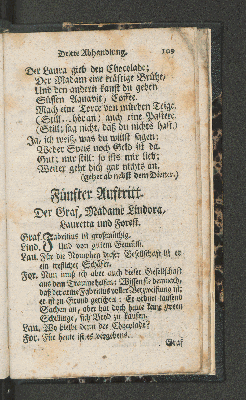 Dritte Abhandlung. 109
Der Laura gieb den Chocolade;
Der Madam eine kräftige Brühe,
Und den andern kanst du geben
Süssen Aqvavit, Coffee.
Mach eine Torte von mürben Teige.
(Still.. höran; auch eine Pastete.
(Still; sag nicht, daß du nichts hast.)
Ja, ich weiß, was du willst sagen:
Weder Speis noch Geld ist da.
Gut; nur still: so ists mir lieb;
Weiter geht dich gar nichts an.
(gehet ab nebst dem Diener.)
Fünfter Auftritt.
Der Graf, Madame Lindora,
Lauretta und Forest.
Graf. Fabritius ist großmüthig.
Lind. Und von gutem Gemüth.
Lau. Für die Nymphen dieser Gesellschaft ist er
ein treflicher Schäfer.
For. Nun muß ich aber auch dieser Gesellschaft
aus dem Traume helfen: Wissen sie demnach,
daß der arme Fabritius voller Verzweiflung ist;
er ist zu Grund gerichtet: Er ordnet tausend
Sachen an, aber hat doch heute kaum zween
Schillinge, sich Brod zu kaufen.
Lau. Wo bleibt denn der Chocolade?
For. Für heute ist es vergebens.
Graf